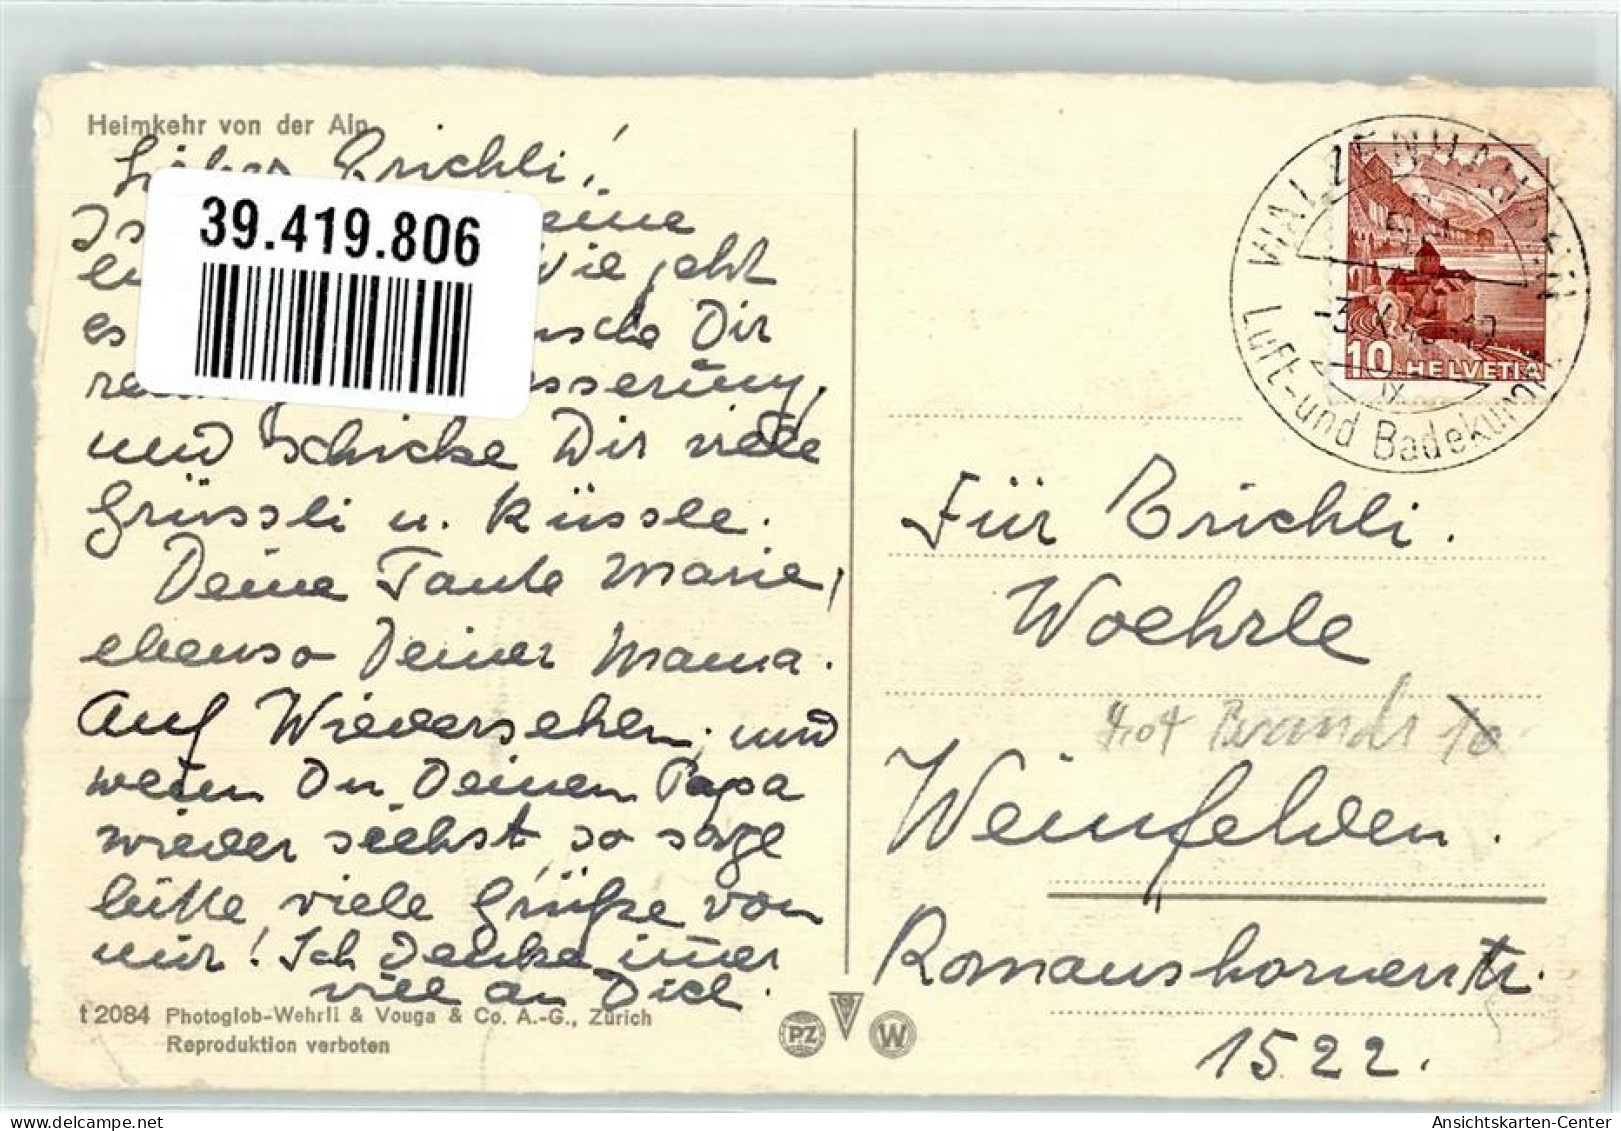 Heimkehr von der Alp
Lieber Erichli!
39.419.806
eine
wie geht
es Dir
und schicke Dir viele
Grüssli u. Küssle.
Deine Tante Marie,
ebenso Deiner Mama.
Auf Wiedersehen, und
wenn Du Deinen Papa
wieder siehst so sage
bitte viele Grüße von
mir! Ich denke immer
viel an Dich.
t 2084 Photoglob-Wehrli & Vouga & Co. A.-G., Zürich
Reproduktion verboten
PZ W
WALZENHAUSEN
Luft- und Badekurort
10 HELVETIA
Für Erichli.
Woehrle
Weinfelden.
Romanshornerstr.
1522.
Ansichtskarten-Center